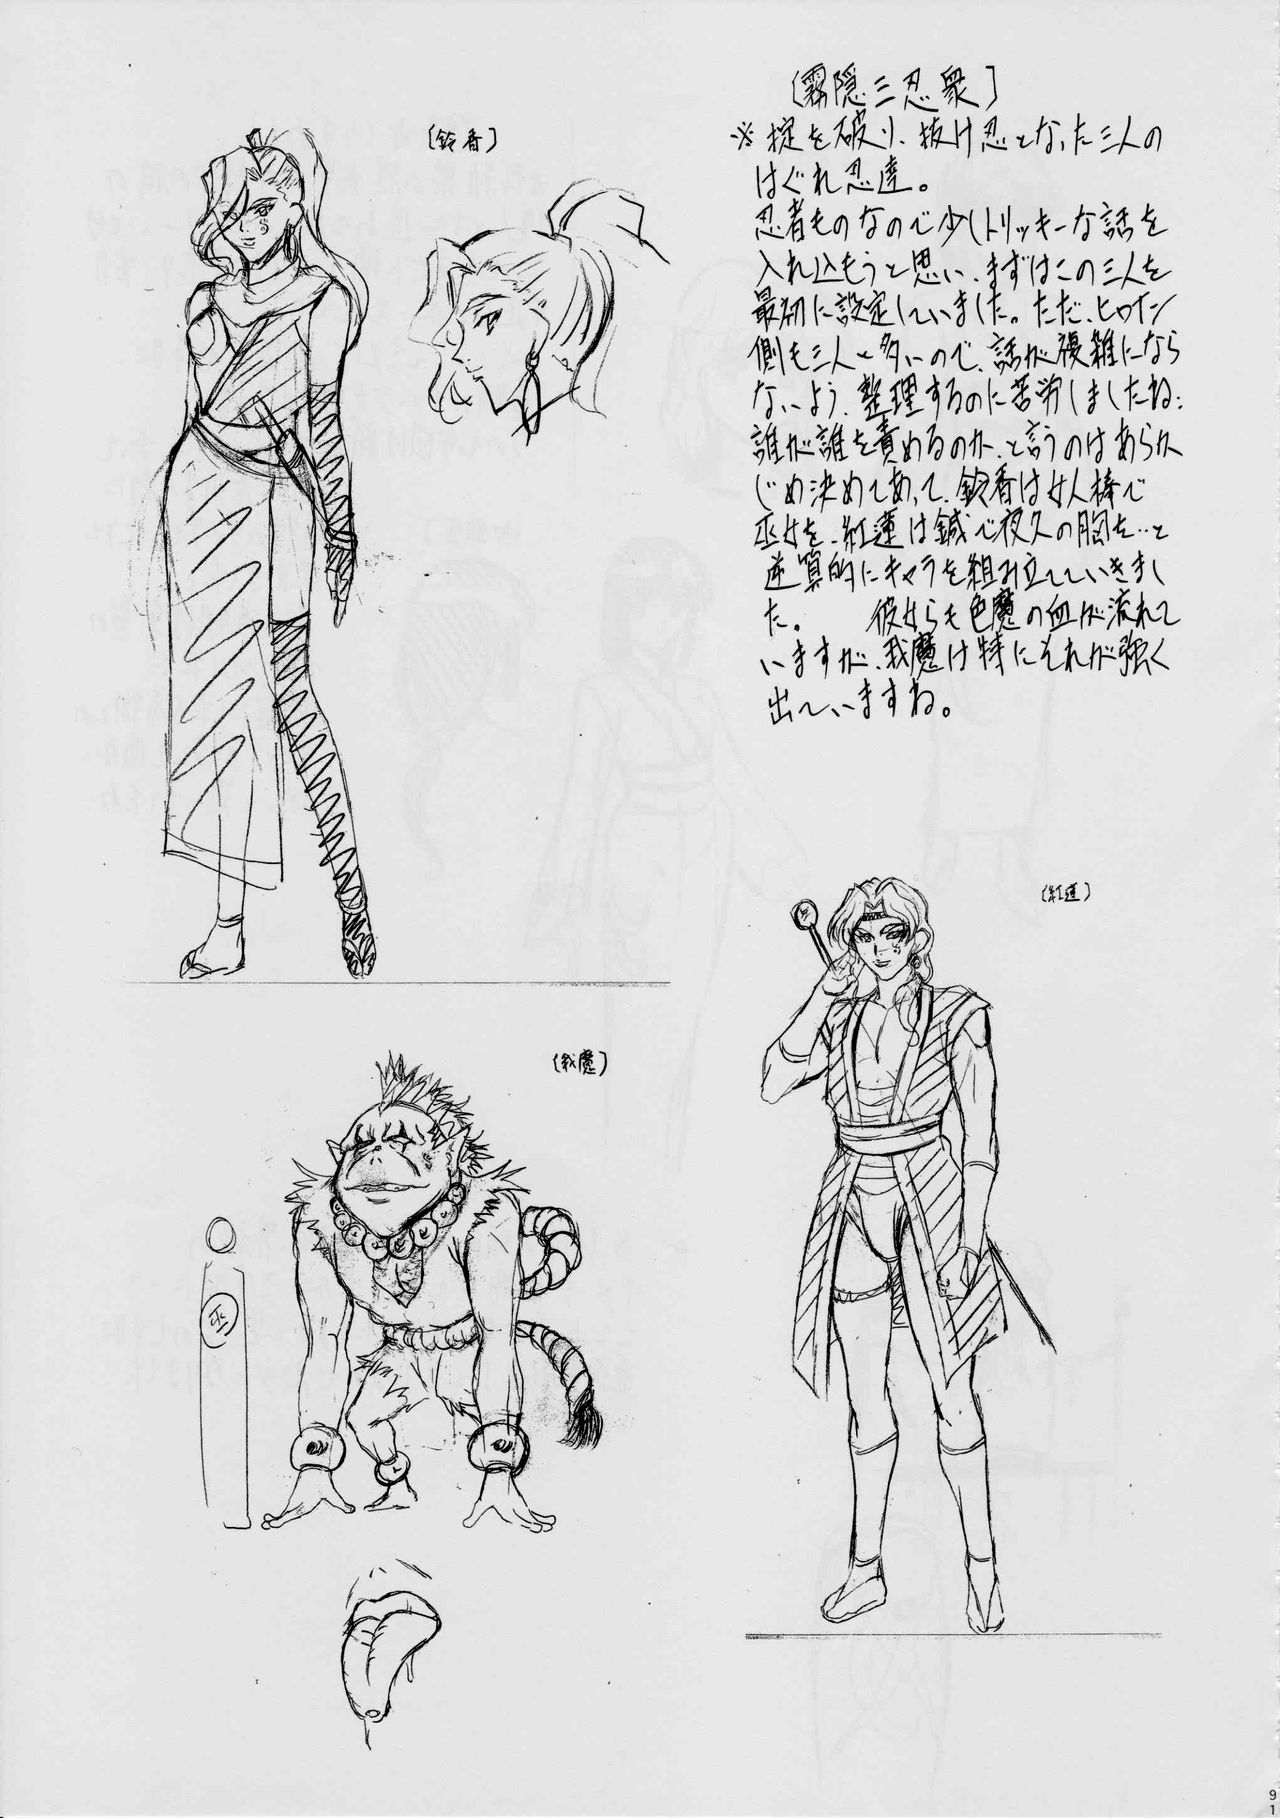 〔霧隠三忍衆〕
※掟を破り、抜け忍となった三人の
はぐれ忍達。
忍者ものなので少しトリッキーな話を
入れ込もうと思い、まずはこの三人を
最初に設定していました。ただ、ヒロイン
側も三人と多いので、話が複雑になら
ないよう、整理するのに苦労しましたね;
誰が誰を責めるのか、と言うのはあらか
じめ決めてあって、鈴香は女人棒で
巫女を、紅蓮は鍼で夜久の胸を…と
逆算的にキャラを組み立てていきまし
た。　彼女らも色魔の血が流れて
いますが、我魔は特にそれが強く
出ていますね。
〔鈴香〕
〔紅蓮〕
〔我魔〕
巫
91